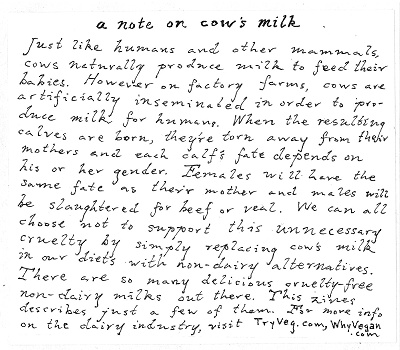 a note on cow's milk
Just like humans and other mammals,
cows naturally produce milk to feed their
babies. However on factory farms, cows are
artificially inseminated in order to pro-
duce milk for humans. When the resulting
calves are born, they're torn away from their
mothers and each calf's fate depends on
his or her gender. Females will have the
same fate as their mother and males will
be slaughtered for beef or veal. We can all
choose not to support this unnecessary
cruelty by simply replacing cow's milk
in our diets with non-dairy alternatives.
There are so many delicious cruelty-free
non-dairy milks out there. This zines
describes just a few of them. For more info
on the dairy industry, visit TryVeg.com, WhyVegan
.com